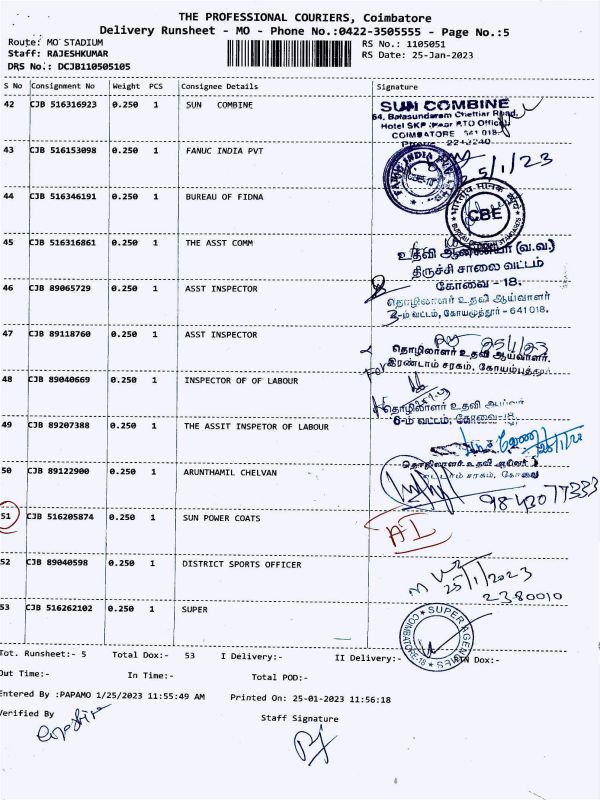 THE PROFESSIONAL COURIERS, Coimbatore
Delivery Runsheet - MO - Phone No.:0422-3505555 - Page No.:5
Route: MO STADIUM
Staff: RAJESHKUMAR
DRS No.: DCJB110505105
RS No.: 1105051
RS Date: 25-Jan-2023
S No Consignment No Weight PCS Consignee Details Signature
42 CJB 516316923 0.250 1 SUN COMBINE
SUN COMBINE
64, Balasundaram Chettiar Road,
Hotel SKP (Near RTO Office)
COIMBATORE 641 018
Phone 2243240
43 CJB 516153098 0.250 1 FANUC INDIA PVT
FANUC INDIA PVT
25/1/23
44 CJB 516346191 0.250 1 BUREAU OF FIDNA
भारतीय मानक ब्यूरो
CBE
BUREAU OF INDIAN STANDARDS
45 CJB 516316861 0.250 1 THE ASST COMM
உதவி ஆணையர் (வ.வ.)
திருச்சி சாலை வட்டம்
கோவை - 18.
46 CJB 89065729 0.250 1 ASST INSPECTOR
தொழிலாளர் உதவி ஆய்வாளர்
3-ம் வட்டம், கோயமுத்தூர் - 641 018.
47 CJB 89118760 0.250 1 ASST INSPECTOR
25/1/23
தொழிலாளர் உதவி ஆய்வாளர்.
இரண்டாம் சரகம், கோயம்புத்தூர்
48 CJB 89040669 0.250 1 INSPECTOR OF OF LABOUR
தொழிலாளர் உதவி ஆய்வர்
6-ம் வட்டம், கோவை-18
49 CJB 89207388 0.250 1 THE ASSIT INSPETOR OF LABOUR
தொழிலாளர் உதவி ஆய்வர்
சரகம், கோவை
50 CJB 89122900 0.250 1 ARUNTHAMIL CHELVAN
9843077333
51 CJB 516205874 0.250 1 SUN POWER COATS
AI
52 CJB 89040598 0.250 1 DISTRICT SPORTS OFFICER
25/1/2023
2380010
53 CJB 516262102 0.250 1 SUPER
SUPER AGENCIES
COIMBATORE-18
Tot. Runsheet:- 5 Total Dox:- 53 I Delivery:- II Delivery:- RTN Dox:-
Out Time:- In Time:- Total POD:-
Entered By :PAPAMO 1/25/2023 11:55:49 AM Printed On: 25-01-2023 11:56:18
Verified By Staff Signature